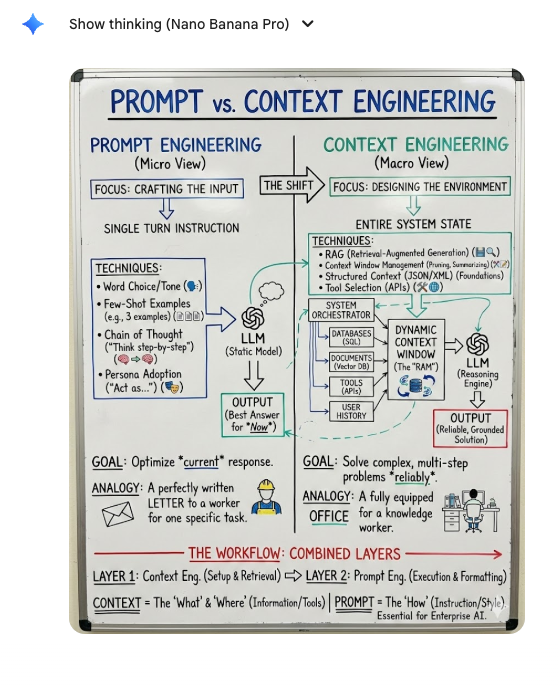 Show thinking (Nano Banana Pro)
PROMPT vs. CONTEXT ENGINEERING
PROMPT ENGINEERING
(Micro View)
FOCUS: CRAFTING THE INPUT
SINGLE TURN INSTRUCTION
TECHNIQUES:
• Word Choice/Tone ()
• Few-Shot Examples
(e.g., 3 examples) ()
• Chain of Thought
("Think step-by-step")
()
• Persona Adoption
("Act as...") ()
LLM
(Static Model)
OUTPUT
(Best Answer
for *Now*)
GOAL: Optimize *current* response.
ANALOGY: A perfectly written
LETTER to a worker
for one specific task.
THE SHIFT
CONTEXT ENGINEERING
(Macro View)
FOCUS: DESIGNING THE ENVIRONMENT
ENTIRE SYSTEM STATE
TECHNIQUES:
• RAG (Retrieval-Augmented Generation) ()
• Context Window Management (Pruning, Summarizing) ()
• Structured Context (JSON/XML) (Foundations)
• Tool Selection (APIs) ()
SYSTEM
ORCHESTRATOR
DATABASES
(SQL)
DOCUMENTS
(Vector DB)
TOOLS
(APIs)
USER
HISTORY
DYNAMIC
CONTEXT
WINDOW
(The "RAM")
LLM
(Reasoning
Engine)
OUTPUT
(Reliable, Grounded
Solution)
GOAL: Solve complex, multi-step
problems *reliably*.
ANALOGY: A fully equipped
OFFICE for a knowledge
worker.
THE WORKFLOW: COMBINED LAYERS
LAYER 1: Context Eng. (Setup & Retrieval) ⇨ LAYER 2: Prompt Eng. (Execution & Formatting)
CONTEXT = The 'What' & 'Where' (Information/Tools) | PROMPT = The 'How' (Instruction/Style).
Essential for Enterprise AI.